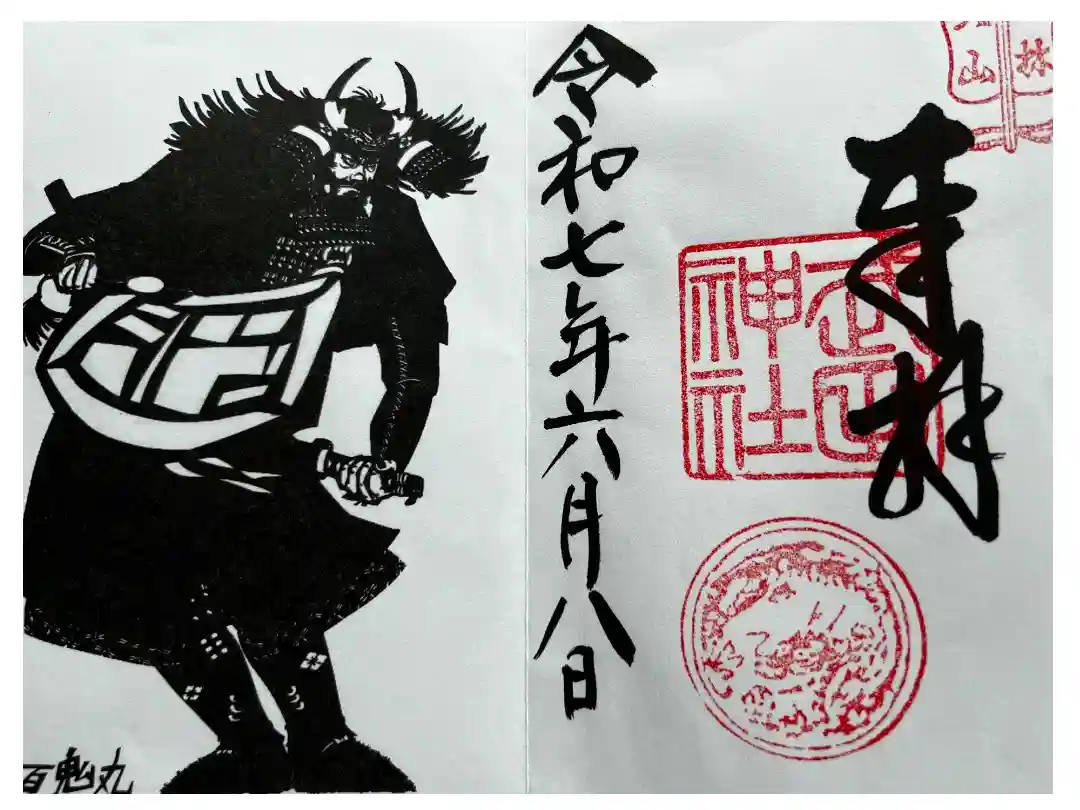 林
山
奉拝
武田
神社
令和七年六月八日
百鬼丸